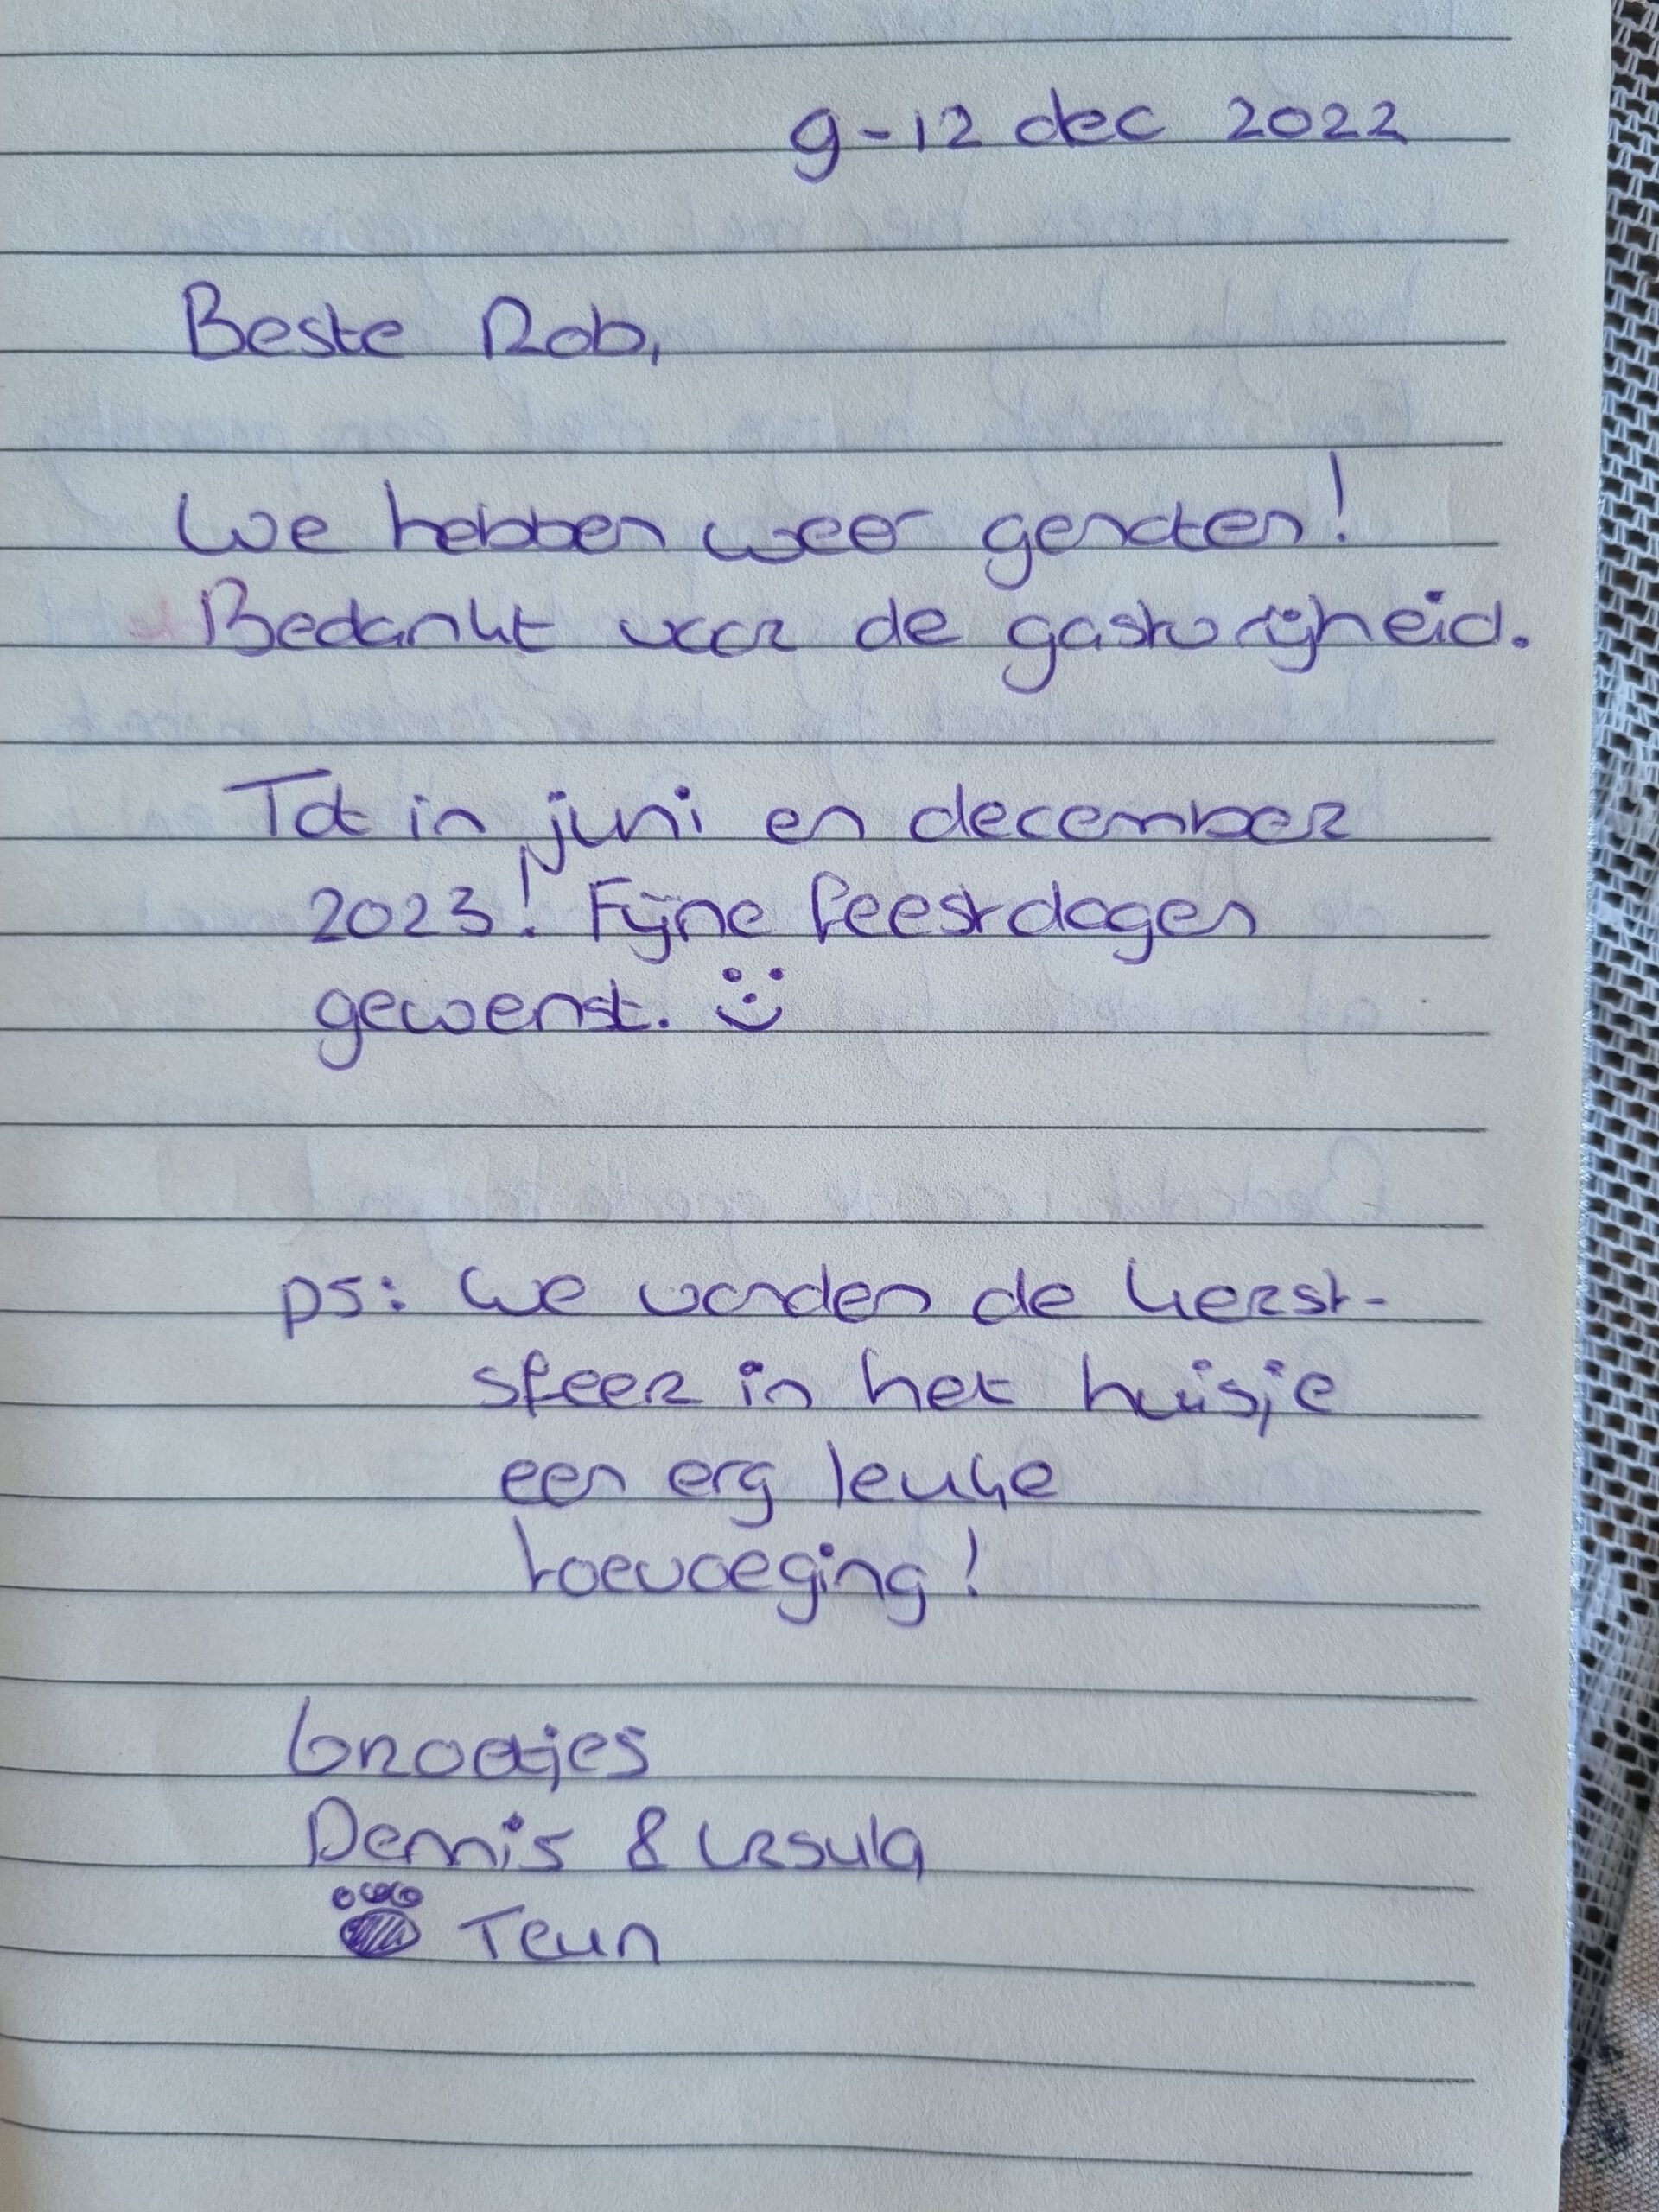 9-12 dec 2022
Beste Rob,
We hebben weer genoten!
Bedankt voor de gastvrijheid.
Tot in juni en december
2023! Fijne feestdagen
gewenst.
ps: We vonden de kerst-
sfeer in het huisje
een erg leuke
toevoeging!
Groetjes
Dennis & Ursula
Teun